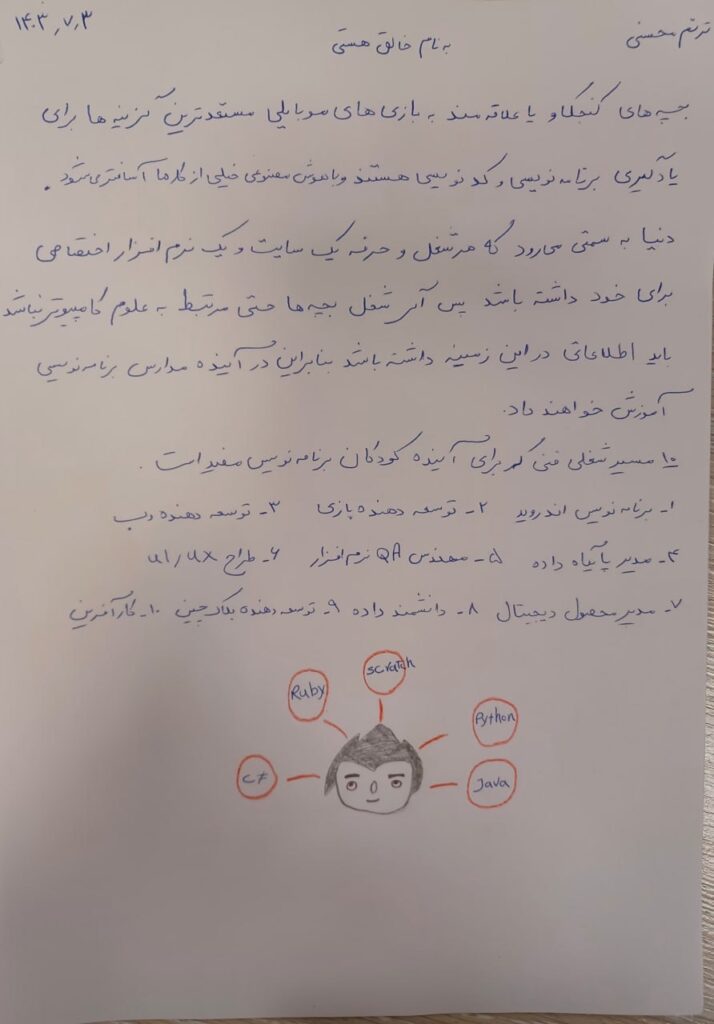 ترنم محسنی
به نام خالق هستی
۱۴۰۳٫۷٫۳
بچه های کنجکاو یا علاقه مند به بازی های موبایلی مستعدترین گزینه ها برای
یادگیری برنامه نویسی و کد نویسی هستند و با هوش مصنوعی خیلی از کارها آسانتر می شود.
دنیا به سمتی می رود که هر شغل و حرفه یک سایت و یک نرم افزار اختصاصی
برای خود داشته باشد پس اگر شغل بچه ها حتی مرتبط به علوم کامپیوتر نباشد
باید اطلاعاتی در این زمینه داشته باشد بنابراین در آینده مدارس برنامه نویسی
آموزش خواهند داد.
۱۰ مسیر شغلی فنی که برای آینده کودکان برنامه نویس مفید است.
۱- برنامه نویس اندروید ۲- توسعه دهنده بازی ۳- توسعه دهنده وب
۴- مدیر پایگاه داده ۵- مهندس QA نرم افزار ۶- طراح UI/UX
۷- مدیر محصول دیجیتال ۸- دانشمند داده ۹- توسعه دهنده بلاک چین ۱۰- کارآفرین
scratch
Ruby
Python
C#
Java